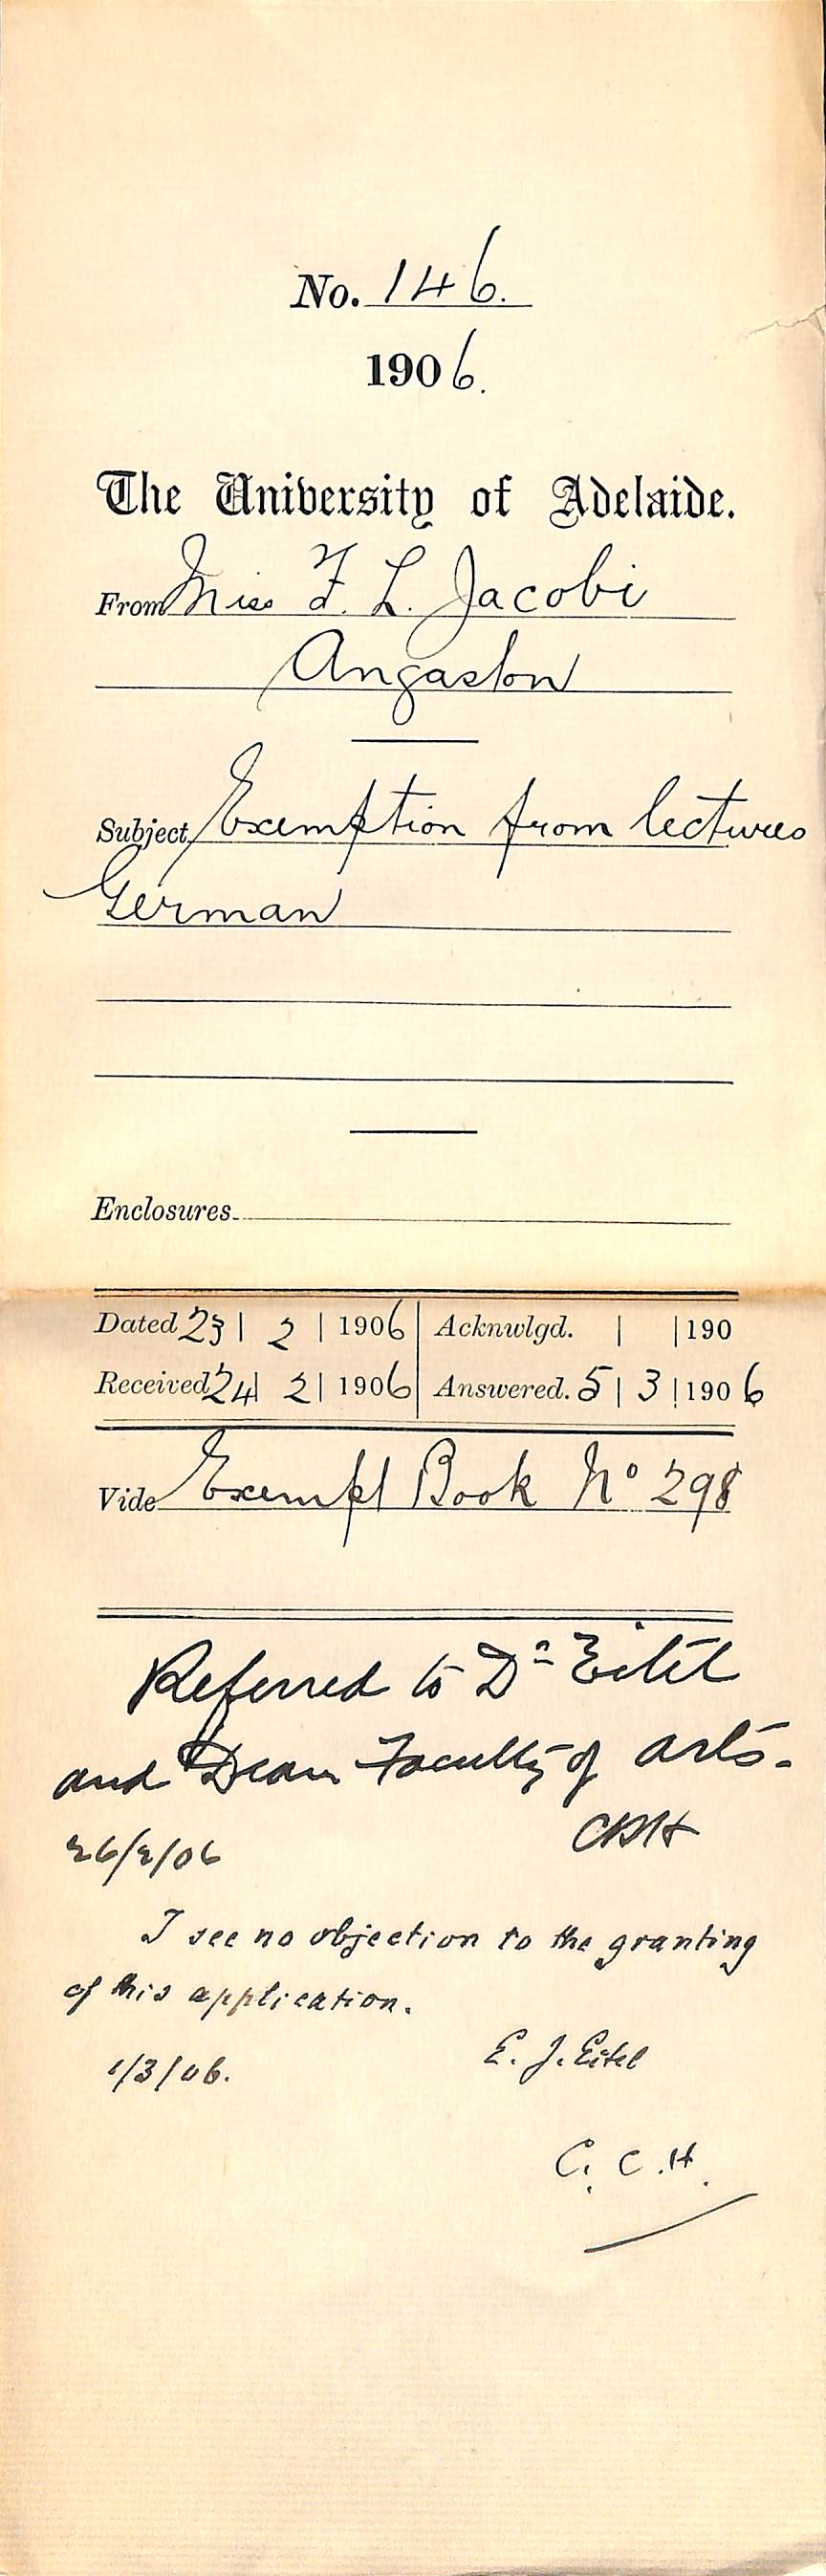 No. 146.
1906.
The University of Adelaide.
From Miss F. L. Jacobi
Angaston
Subject Exemption from lectures
German
Enclosures
Dated 23 | 2 | 1906 | Acknwlgd. | | 190
Received 24 | 2 | 1906 | Answered. 5 | 3 | 1906
Vide Exempt Book No 298
Referred to Dr Eitel
and Dean Faculty of Arts.
26/2/06 CRH
I see no objection to the granting
of this application.
1/3/06. E. J. Eitel
C. C. H.